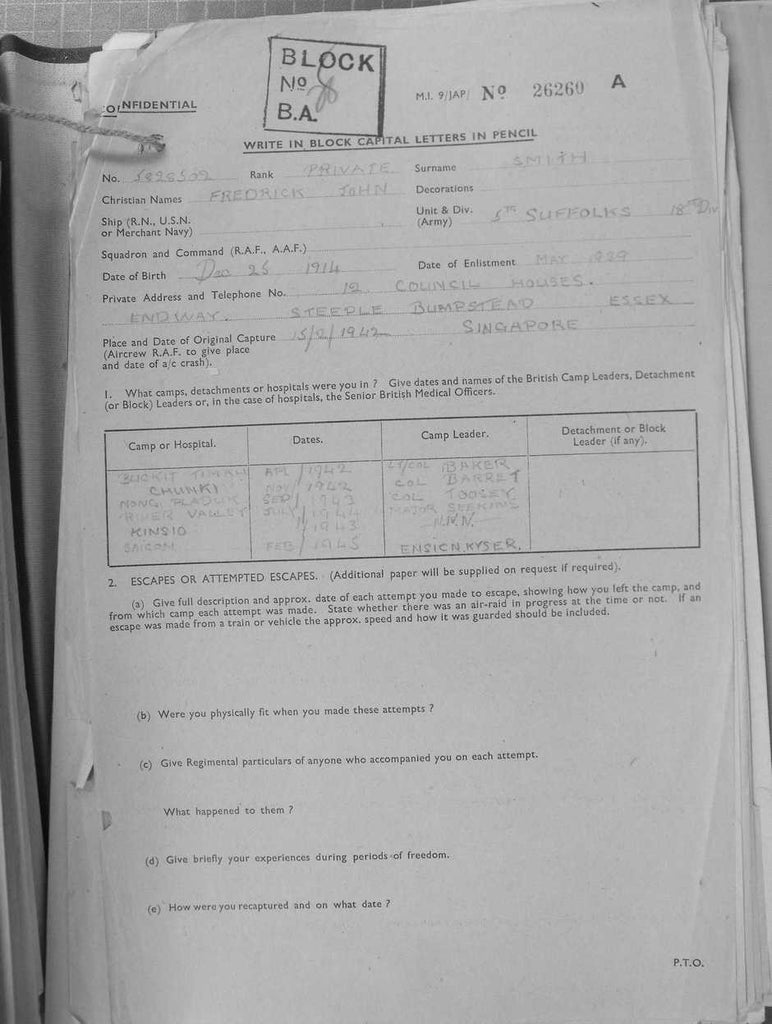 BLOCK
No
B.A.
CONFIDENTIAL
M.I. 9/JAP/ No 26260 A
WRITE IN BLOCK CAPITAL LETTERS IN PENCIL
No. 5828502 Rank PRIVATE Surname SMITH
Christian Names FREDRICK JOHN Decorations
Ship (R.N., U.S.N.
or Merchant Navy)
Unit & Div. 5TH SUFFOLKS 18TH Div
(Army)
Squadron and Command (R.A.F., A.A.F.)
Date of Birth Dec 25 1914 Date of Enlistment MAY 1939
Private Address and Telephone No. 12 COUNCIL HOUSES.
ENDWAY. STEEPLE BUMPSTEAD ESSEX
Place and Date of Original Capture 15/2/1942 SINGAPORE
(Aircrew R.A.F. to give place
and date of a/c crash).
1. What camps, detachments or hospitals were you in ? Give dates and names of the British Camp Leaders, Detachment
(or Block) Leaders or, in the case of hospitals, the Senior British Medical Officers.
Camp or Hospital. Dates. Camp Leader. Detachment or Block
Leader (if any).
BUCKIT TIMAH APL/1942 LT/COL BAKER
CHUNKI NOV/1942 COL BARRET
NONG PLADUK SEP/1943 COL TOOSEY
RIVER VALLEY JULY/1944 MAJOR
KINSIO /1943
SAIGON FEB/1945 ENSIGN KYSER.
2. ESCAPES OR ATTEMPTED ESCAPES. (Additional paper will be supplied on request if required).
(a) Give full description and approx. date of each attempt you made to escape, showing how you left the camp, and
from which camp each attempt was made. State whether there was an air-raid in progress at the time or not. If an
escape was made from a train or vehicle the approx. speed and how it was guarded should be included.
(b) Were you physically fit when you made these attempts ?
(c) Give Regimental particulars of anyone who accompanied you on each attempt.
What happened to them ?
(d) Give briefly your experiences during periods of freedom.
(e) How were you recaptured and on what date ?
P.T.O.